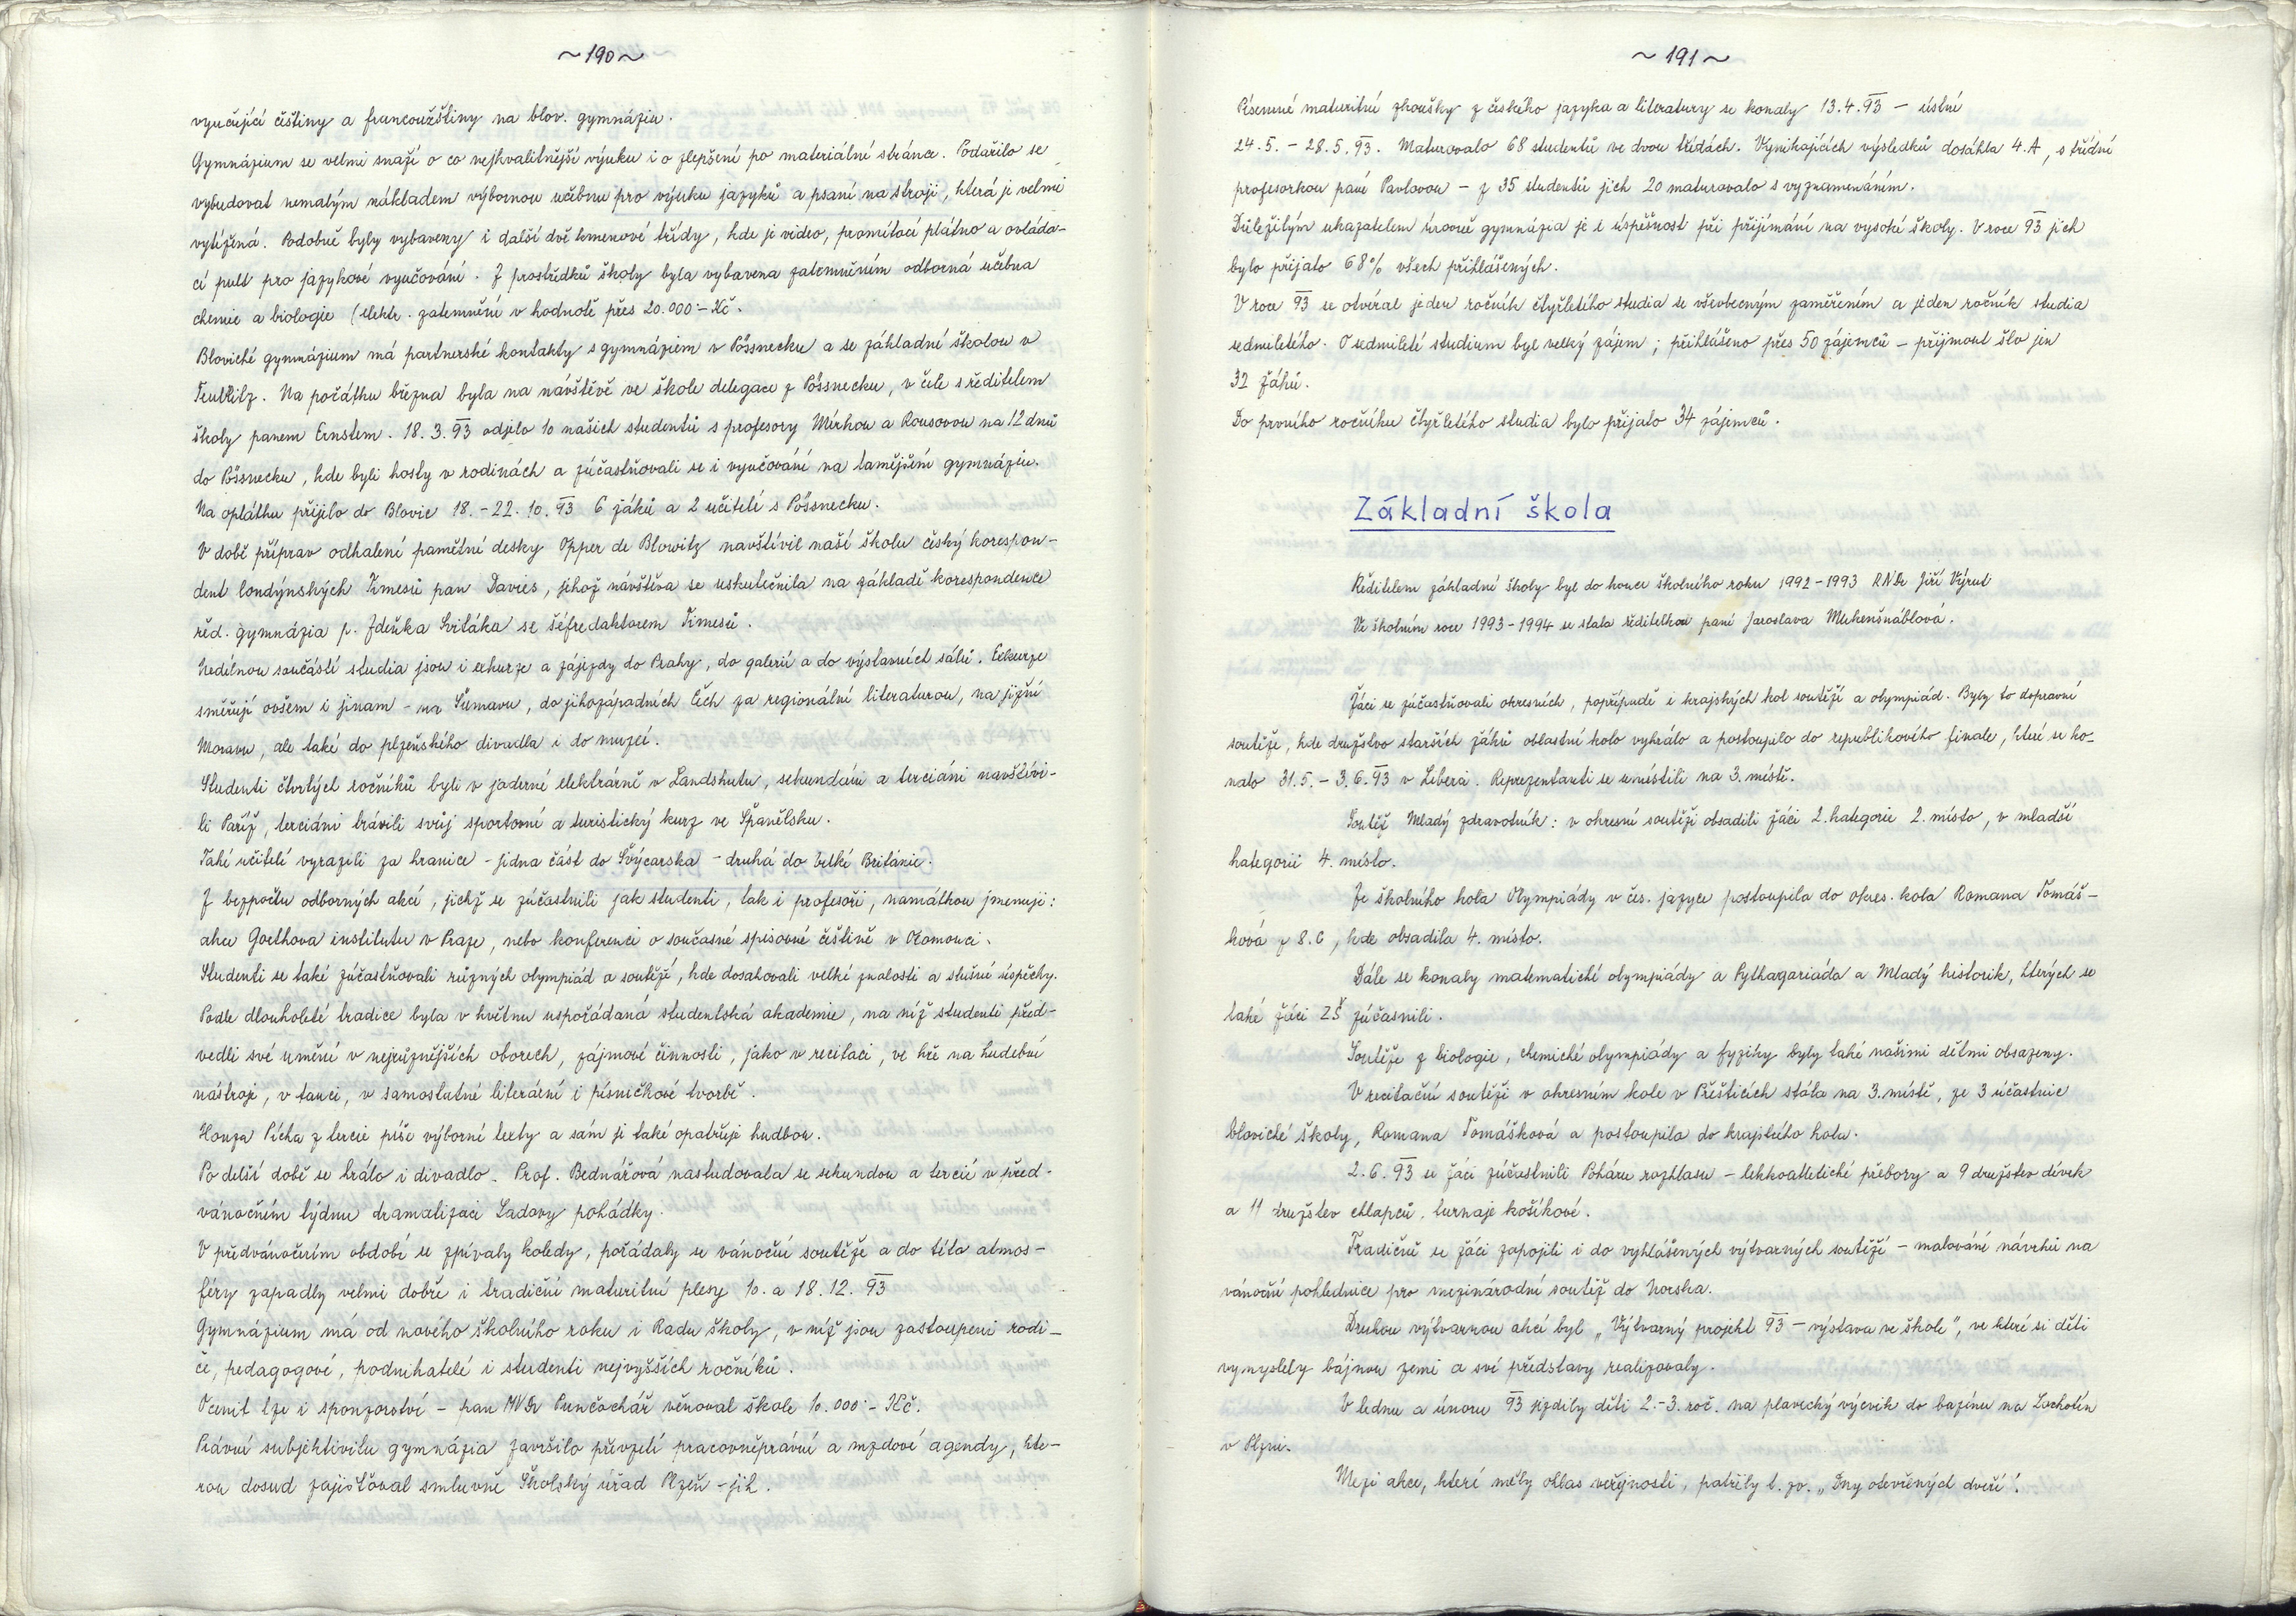 ~190~
vyučující češtiny a francouzštiny na blov. gymnáziu.
Gymnázium se velmi snaží o co nejkvalitnější výuku i o zlepšení po materiální stránce. Podařilo se
vybudovat nemalým nákladem výbornou učebnu pro výuku jazyků a psaní na stroji, která je velmi
vytížená. Podobně byly vybaveny i další dvě kmenové třídy, kde je video, promítací plátno a ovláda-
cí pult pro jazykové vyučování. Z prostředků školy byla vybavena zatemněním odborná učebna
chemie a biologie (elektr. zatemnění v hodnotě přes 20.000.- Kč.
Blovické gymnázium má partnerské kontakty s gymnáziem v Pössnecku a se základní školou v
Na počátku března byla na návštěvě ve škole delegace z Pössnecku, v čele s ředitelem
školy panem Ernstem. 18.3.93 odjelo 10 našich studentů s profesory Mírkou a Rousovou na 12 dnů
do Pössnecku, kde byli hosty v rodinách a zúčastňovali se i vyučování na tamějším gymnáziu.
Na oplátku přijelo do Blovic 18.-22.10.93 6 žáků a 2 učitelé s Pössnecku.
V době příprav odhalení pamětní desky Opper de Blowitz navštívil naší školu český korespon-
dent londýnských Timesů pan Davies, jehož návštěva se uskutečnila na základě korespondence
řed. gymnázia p. Zdeňka Sviták​a se šéfredaktorem Timesů.
Nedílnou součástí studia jsou i exkurze a zájezdy do Prahy, do galerií a do výstavních sálů. Exkurze
směřují ovšem i jinam - na Šumavu, do jihozápadních Čech za regionální literaturou, na jižní
Moravu, ale také do plzeňského divadla i do muzeí.
Studenti čtvrtých ročníků byli v jaderné elektrárně v Landshutu, sekundáni a terciáni navštívi-
li Paříž, terciáni trávili svůj sportovní a turistický kurz ve Španělsku.
Také učitelé vyrazili za hranice - jedna část do Švýcarska - druhá do Velké Británie.
Z bezpočtu odborných akcí, jichž se zúčastnili jak studenti, tak i profesoři, namátkou jmenuji:
akce Goethova institutu v Praze, nebo konferenci o současné spisovné češtině v Olomouci.
Studenti se také zúčastňovali různých olympiád a soutěží, kde dosahovali velké znalosti a slušné úspěchy.
Podle dlouholeté tradice byla v květnu uspořádaná studentská akademie, na níž studenti před-
vedli své umění v nejrůznějších oborech, zájmové činnosti, jako v recitaci, ve hře na hudební
nástroje, v tanci, v samostatné literární i písničkové tvorbě.
Honza Pícha z tercie píše výborné texty a sám je také opatřuje hudbou.
Po delší době se hrálo i divadlo. Prof. Bednářová nastudovala se sekundou a tercií v před-
vánočním týdnu dramatizaci Ladovy pohádky.
V předvánočním období se zpívaly koledy, pořádaly se vánoční soutěže a do této atmos-
féry zapadly velmi dobře i tradiční maturitní plesy 10. a 18.12.93
Gymnázium má od nového školního roku i Radu školy, v níž jsou zastoupeni rodi-
če, pedagogové, podnikatelé i studenti nejvyšších ročníků.
Ocenit lze i sponzorství - pan MVDr Punčochář věnoval škole 10.000.- Kč.
Právní subjektivitu gymnázia završilo převzetí pracovněprávní a mzdové agendy, kte-
rou dosud zajišťoval smluvně Školský úřad Plzeň-jih.
~191~
Písemné maturitní zkoušky z českého jazyka a literatury se konaly 13.4.93 - ústní
24.5.-28.5.93. Maturovalo 68 studentů ve dvou třídách. Vynikajících výsledků dosáhla 4.A, s třídní
profesorkou paní Pavlovou - z 35 studentů jich 20 maturovalo s vyznamenáním.
Důležitým ukazatelem úrovně gymnázia je i úspěšnost při přijímání na vysoké školy. V roce 93 jich
bylo přijato 68% všech přihlášených.
V roce 93 se otvíral jeden ročník čtyřletého studia se všeobecným zaměřením a jeden ročník studia
sedmiletého. O sedmileté studium byl velký zájem; přihlášeno přes 50 zájemců - přijmout šlo jen
32 žáků.
Do prvního ročníku čtyřletého studia bylo přijato 34 zájemců.
Základní škola
Ředitelem základní školy byl do konce školního roku 1992-1993 RNDr Jiří Výrut
Ve školním roce 1993-1994 se stala ředitelkou paní Jaroslava Mukenšnáblová.
Žáci se zúčastňovali okresních, popřípadě i krajských kol soutěží a olympiád. Byly to dopravní
soutěže, kde družstvo starších žáků oblastní kolo vyhrálo a postoupilo do republikového finále, které se ko-
nalo 31.5.-3.6.93 v Liberci. Reprezentanti se umístili na 3. místě.
Soutěž Mladý zdravotník: v okresní soutěži obsadili žáci 2. kategorie 2. místo, v mladší
kategorii 4. místo.
Ze školního kola Olympiády v čes. jazyce postoupila do okres. kola Romana Tomáš-
ková z 8.C, kde obsadila 4. místo.
Dále se konaly matematické olympiády a Pythagoriáda a Mladý historik, kterých se
také žáci ZŠ zúčasnili.
Soutěže z biologie, chemické olympiády a fyziky byly také našimi dětmi obsazeny.
V recitační soutěži v okresním kole v Přešticích stála na 3. místě, ze 3 účastnic
blovické školy, Romana Tomášková a postoupila do krajského kola.
2.6.93 se žáci zúčastnili Poháru rozhlasu - lehkoatletické přebory a 9 družstev dívek
a 11 družstev chlapců, turnaje košíkové.
Tradičně se žáci zapojili i do vyhlášených výtvarných soutěží - malování návrhů na
vánoční pohlednice pro mezinárodní soutěž do Norska.
Druhou výtvarnou akcí byl „Výtvarný projekt 93 - výstava ve škole", ve které si děti
vymyslely bájnou zemi a své představy realizovaly.
V lednu a únoru 93 jezdily děti 2.-3. roč. na plavecký výcvik do bazénu na Lochotín
v Plzni.
Mezi akce, které měly ohlas veřejnosti, patřily t. zv. „Dny otevřených dveří".